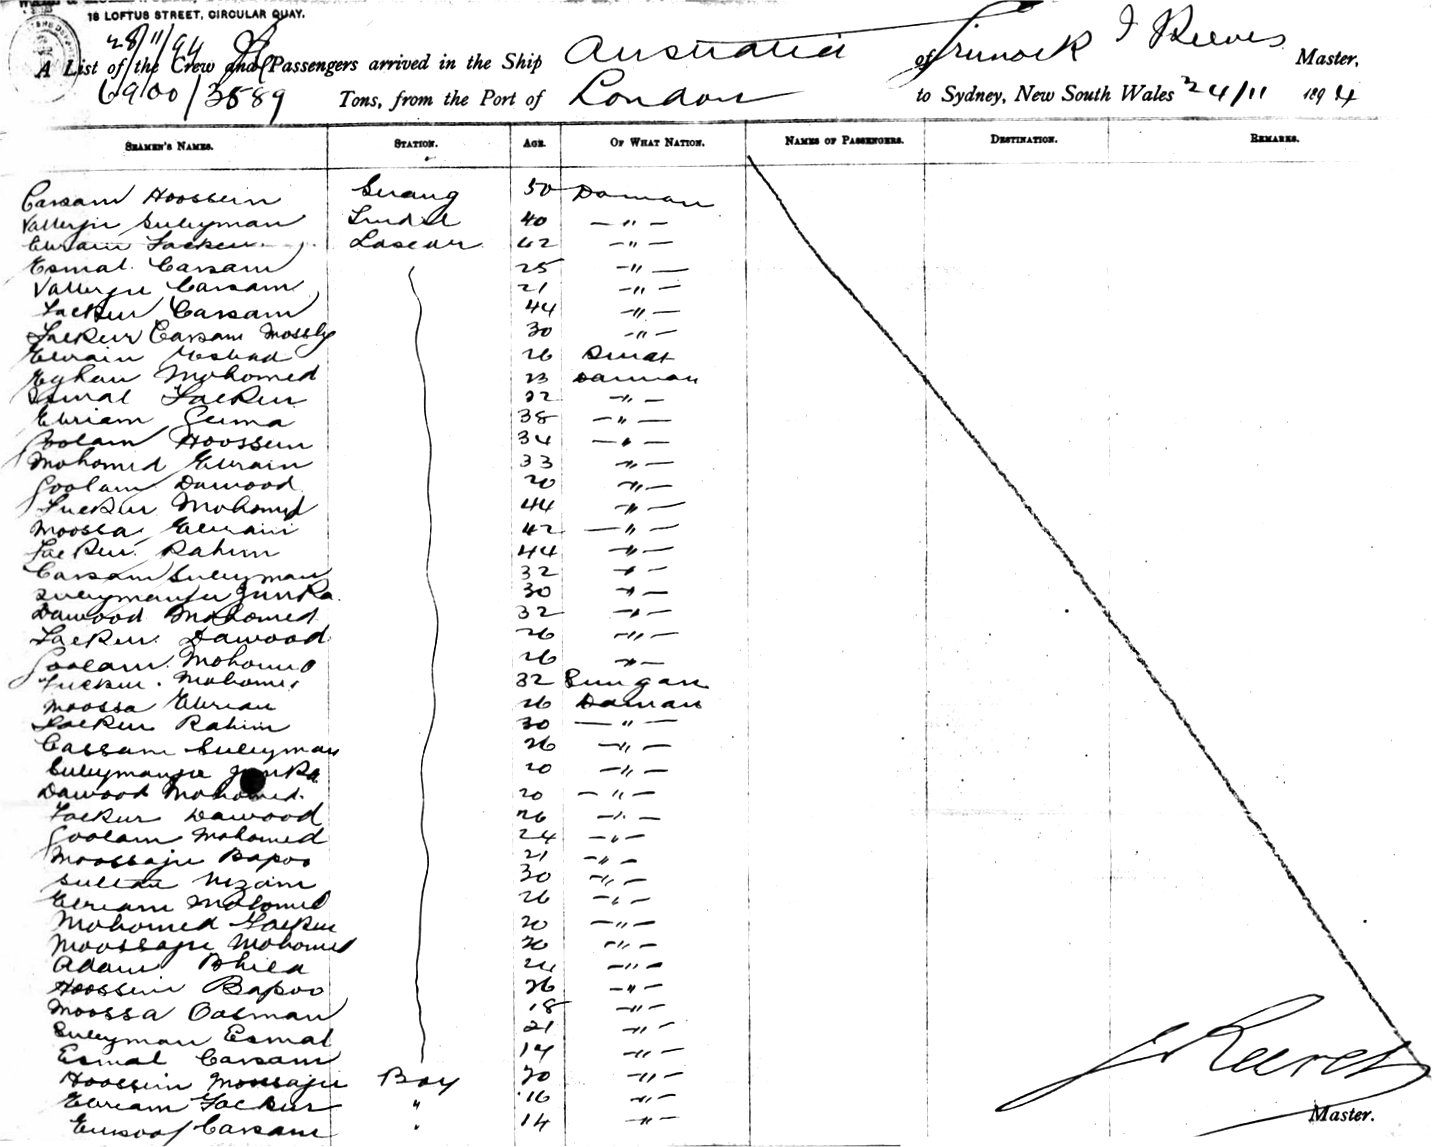 18 LOFTUS STREET, CIRCULAR QUAY.
28/11/94
A List of the Crew and Passengers arrived in the Ship Australia of J Reeves Master,
6900/3589 Tons, from the Port of London to Sydney, New South Wales 24/11 1894
SEAMEN'S NAMES. STATION. AGE. OF WHAT NATION. NAMES OF PASSENGERS. DESTINATION. REMARKS.
Carsam Hoossein Serang 50 Daman
Vallerjie Suleyman Tindal 40 — " —
Ebraim Lascar 42 — " —
Esmal Carsam 25 — " —
Vallerjie Carsam 21 — " —
Carsam 44 — " —
Carsam 30 — " —
Ebraim 26 Surat
Mohomed 23 Daman
Esmal 22 — " —
Ebriam 38 — " —
Goolam Hoossein 34 — " —
Mohomed Ebraim 33 — " —
Goolam Dawood 20 — " —
Mohomed 44 — " —
Moossa Ebraim 42 — " —
Rahim 44 — " —
Carsam Suleyman 32 — " —
Suleymanjee 30 — " —
Dawood Mohomed 32 — " —
Dawood 26 — " —
Goolam Mohomed 26 — " —
Mohomed 32
Moossa Ebriam 26 Daman
Rahim 30 — " —
Cassam Suleyman 26 — " —
Suleymanjee 20 — " —
Dawood Mohomed 20 — " —
Dawood 26 — " —
Goolam Mohomed 24 — " —
Moossajee Bapoo 21 — " —
Sultan Nizam 30 — " —
Ebriam Mohomed 26 — " —
Mohomed 20 — " —
Moossajee Mohomed 20 — " —
Adam Bhica 24 — " —
Hoossein Bapoo 26 — " —
Moossa Oosman 18 — " —
Suleyman Esmal 21 — " —
Esmal Carsam 14 — " —
Hoossein Moossajee Boy 20 — " —
Ebriam " 16 — " —
Carsam " 14 — " —
J Reeves
Master.